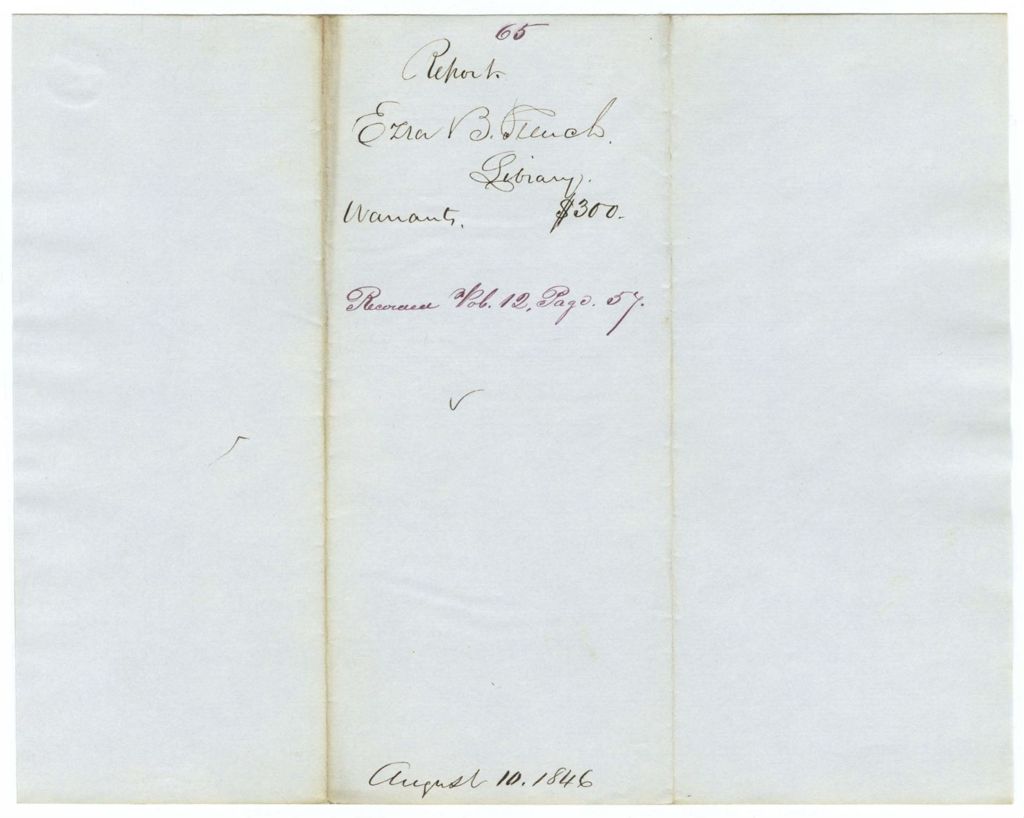 65
Report
Ezra B. French.
Library.
Warrant, $300.
Recorded Vol. 12, Page. 57.
August 10. 1846